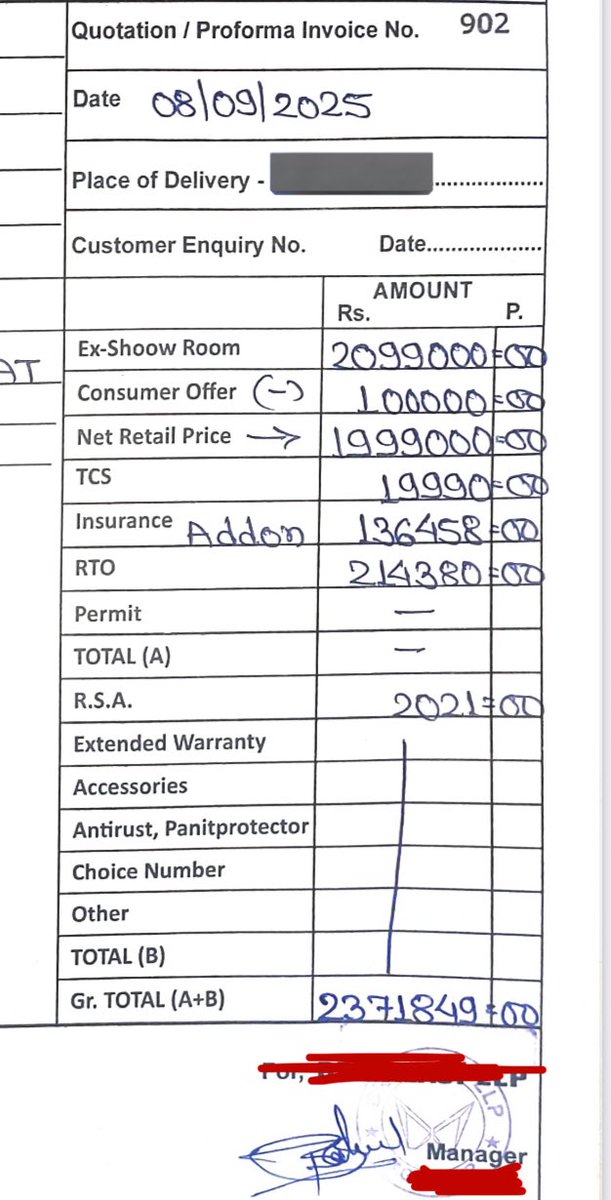 Quotation / Proforma Invoice No. 902
Date 08/09/2025
Place of Delivery - ..................
Customer Enquiry No. Date...................
AMOUNT
Rs. P.
Ex-Shoow Room 2099000=00
AT
Consumer Offer (-) 100000=00
Net Retail Price → 1999000=00
TCS 19990=00
Insurance Addon 136458=00
RTO 214380=00
Permit —
TOTAL (A) —
R.S.A. 2021=00
Extended Warranty
Accessories
Antirust, Panitprotector
Choice Number
Other
TOTAL (B)
Gr. TOTAL (A+B) 2371849=00
For, LLP
LLP
Manager